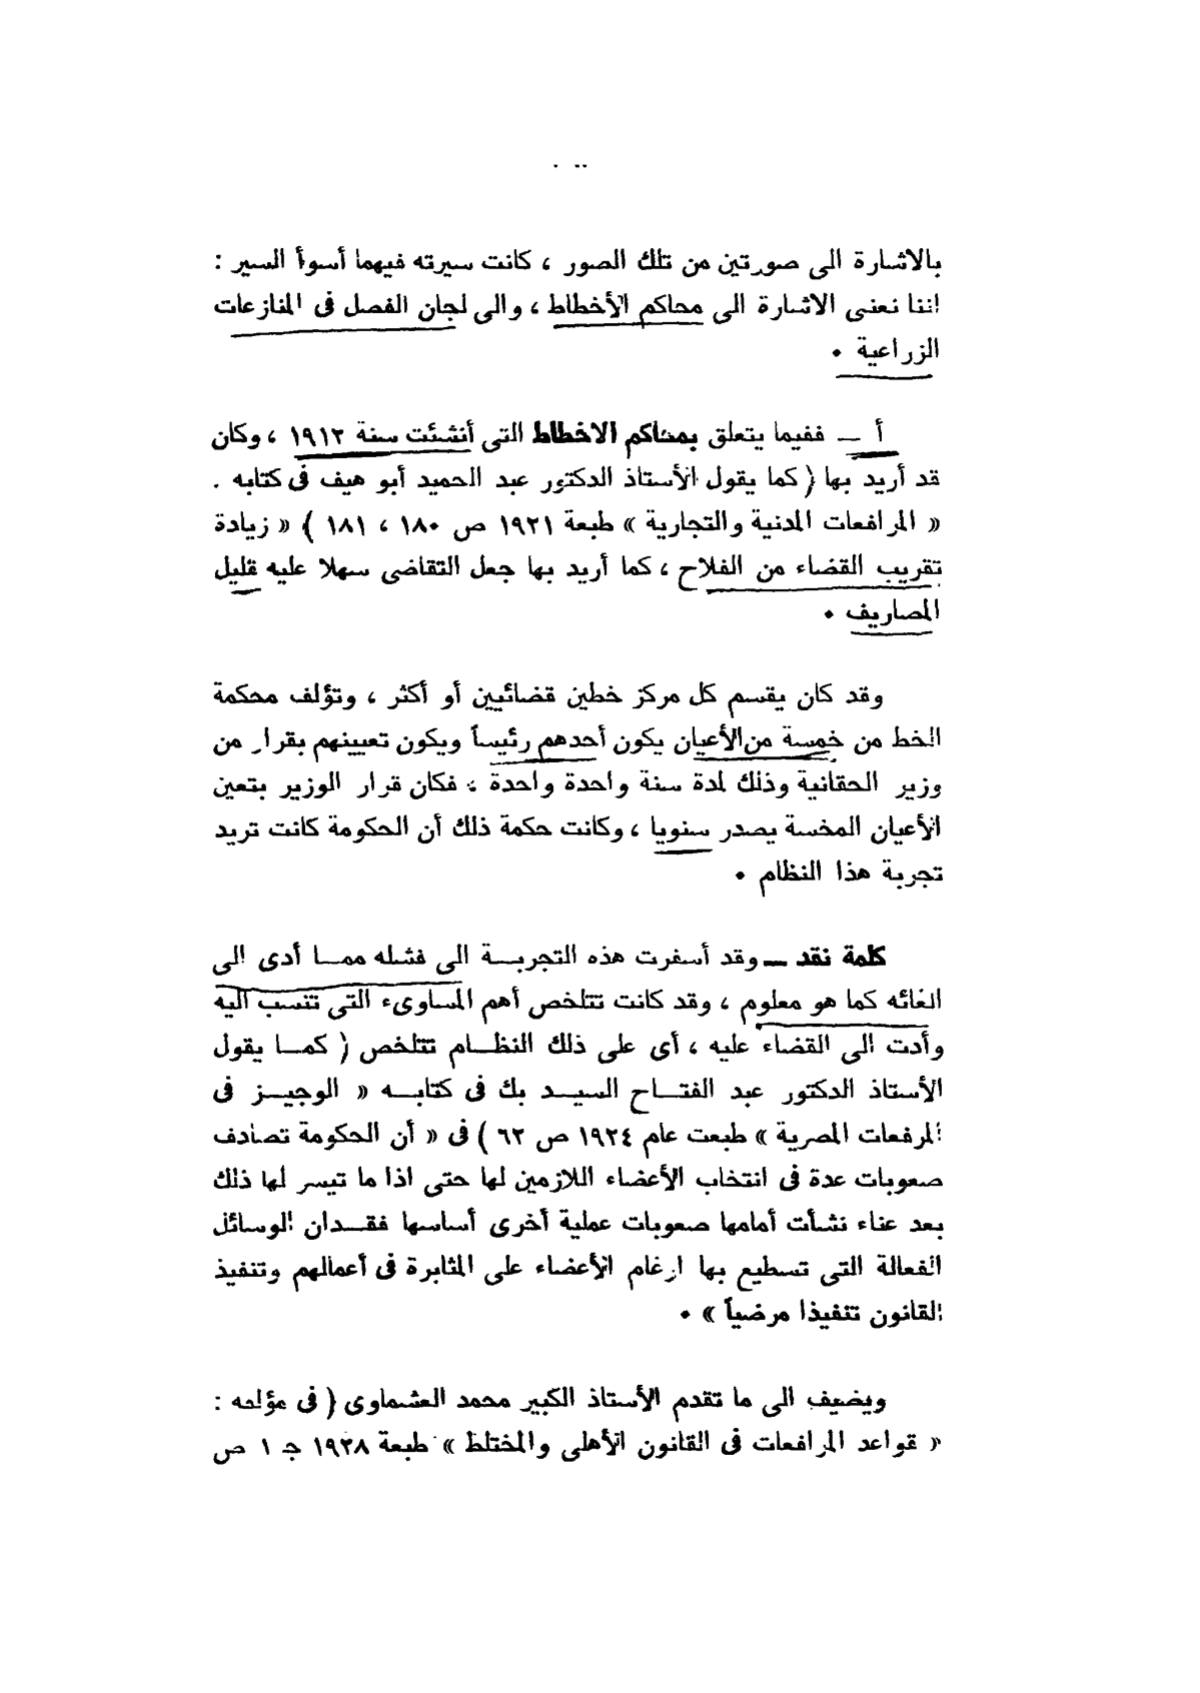 بالاشارة الى صورتين من تلك الصور ، كانت سيرته فيهما أسوأ السير :
اننا نعنى الاشارة الى محاكم الأخطاط ، والى لجان الفصل فى المنازعات
الزراعية .
أ ــ ففيما يتعلق بمحاكم الاخطاط التى أنشئت سنة ١٩١٢ ، وكان
قد أريد بها ( كما يقول الأستاذ الدكتور عبد الحميد أبو هيف فى كتابه .
« المرافعات المدنية والتجارية » طبعة ١٩٢١ ص ١٨٠ ، ١٨١ ) « زيادة
تقريب القضاء من الفلاح ، كما أريد بها جعل التقاضى سهلا عليه قليل
المصاريف .
وقد كان يقسم كل مركز خطين قضائيين أو أكثر ، وتؤلف محكمة
الخط من خمسة من الأعيان يكون أحدهم رئيساً ويكون تعيينهم بقرار من
وزير الحقانية وذلك لمدة سنة واحدة واحدة ؛ فكان قرار الوزير بتعين
الأعيان المخسة يصدر سنويا ، وكانت حكمة ذلك أن الحكومة كانت تريد
تجربة هذا النظام .
كلمة نقد ــ وقد أسفرت هذه التجربــة الى فشله ممــا أدى الى
الغائه كما هو معلوم ، وقد كانت تتلخص أهم المساوىء التى تنسب اليه
وأدت الى القضاء عليه ، أى على ذلك النظــام تتلخص ( كمــا يقول
الأستاذ الدكتور عبد الفتــاح السيــد بك فى كتابــه « الوجيــز فى
المرفعات المصرية » طبعت عام ١٩٢٤ ص ٦٢ ) فى « أن الحكومة تصادف
صعوبات عدة فى انتخاب الأعضاء اللازمين لها حتى اذا ما تيسر لها ذلك
بعد عناء نشأت أمامها صعوبات عملية أخرى أساسها فقــدان الوسائل
الفعالة التى تسطيع بها ارغام الأعضاء على المثابرة فى أعمالهم وتنفيذ
القانون تنفيذا مرضياً » .
ويضيف الى ما تقدم الأستاذ الكبير محمد العشماوى ( فى مؤلفه :
« قواعد المرافعات فى القانون الأهلى والمختلط » طبعة ١٩٢٨ جـ ١ ص